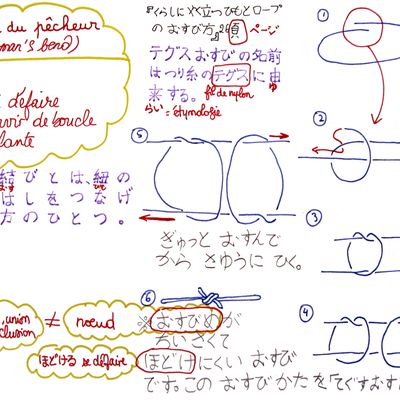 du pêcheur
man's bend)
défaire
de boucle
lante
結びとは、紐の
はしをつなげ
方のひとつ。
『くらしに役立つひもとロープ
の むすび方』 頁 ページ
テグスむすびの名前
はつり糸のテグスに由
ゆ
来する。 fil de nylon
らい = étymologie
①
②
③
④
⑤
ぎゅっと むすんで
から さゆうに ひく。
⑥
, union
clusion
≠ nœud
ほどける se défaire
※むすびめが
ちいさくて
ほどけにくい むすび
です。この むすびかたを「てぐすむす